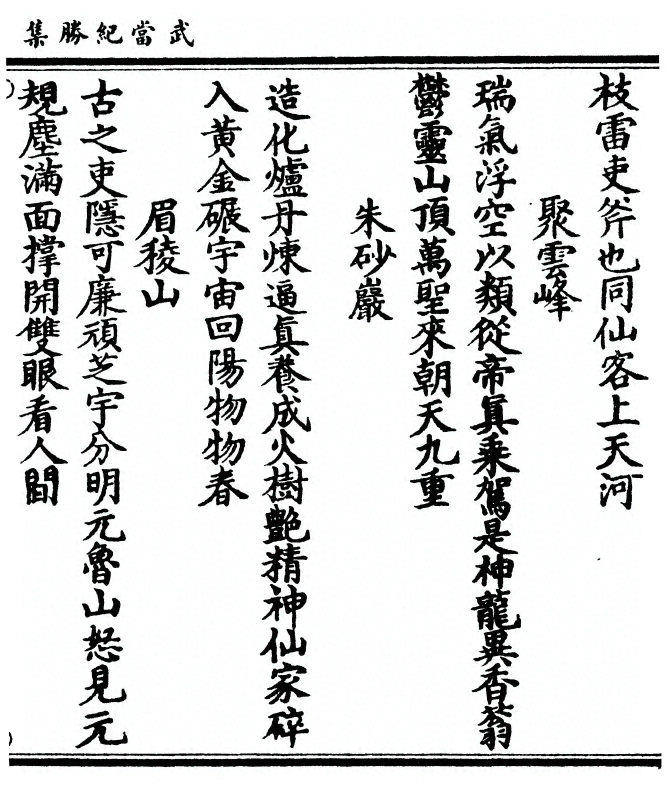 武當紀勝集
枝雷吏斧也同仙客上天河
聚雲峰
瑞氣浮空以類從帝眞乘駕是神龍異香蓊
鬱靈山頂萬聖來朝天九重
朱砂巖
造化爐丹煉逼眞養成火樹艷精神仙家碎
入黃金碾宇宙回陽物物春
眉稜山
古之吏隱可廉頑芝宇分明元魯山怒見元
規塵滿面撑開雙眼看人間